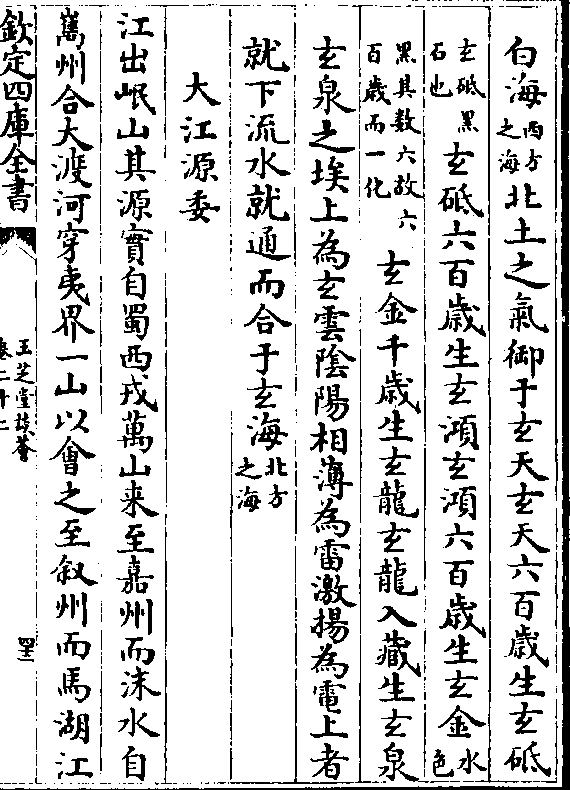 白海西方之海北土之氣御于玄天玄天六百歳生玄砥
玄砥黑石也玄砥六百歳生玄澒玄澒六百歳生玄金水色
黑其数六故六百歳而一化玄金千歳生玄龍玄龍入藏生玄泉
玄泉之埃上為玄雲陰陽相薄為雷激揚為電上者
就下流水就通而合于玄海北方之海
大江源委
江出岷山其源實自蜀西戎萬山来至嘉州而沫水自
嶲州合大渡河穿夷界一山以會之至叙州而馬湖江
欽定四庫全書
玉芝堂談薈
卷二十二